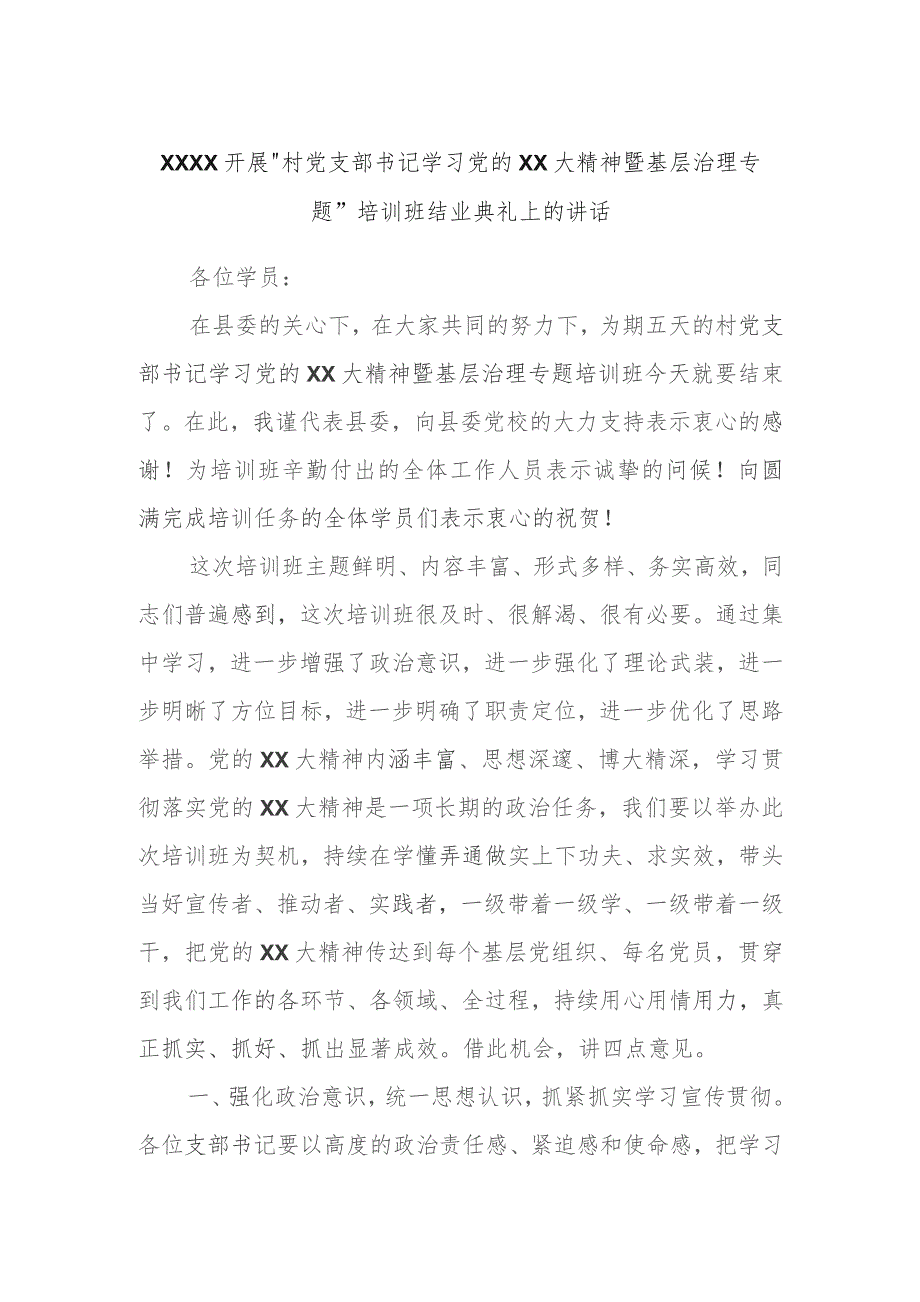 XXXX开展"村党支部书记学习党的XX大精神暨基层治理专
题”培训班结业典礼上的讲话
各位学员：
在县委的关心下，在大家共同的努力下，为期五天的村党支
部书记学习党的XX大精神暨基层治理专题培训班今天就要结束
了。在此，我谨代表县委，向县委党校的大力支持表示衷心的感
谢！为培训班辛勤付出的全体工作人员表示诚挚的问候！向圆
满完成培训任务的全体学员们表示衷心的祝贺！
这次培训班主题鲜明、内容丰富、形式多样、务实高效，同
志们普遍感到，这次培训班很及时、很解渴、很有必要。通过集
中学习，进一步增强了政治意识，进一步强化了理论武装，进一
步明晰了方位目标，进一步明确了职责定位，进一步优化了思路
举措。党的XX大精神内涵丰富、思想深邃、博大精深，学习贯
彻落实党的XX大精神是一项长期的政治任务，我们要以举办此
次培训班为契机，持续在学懂弄通做实上下功夫、求实效，带头
当好宣传者、推动者、实践者，一级带着一级学、一级带着一级
干，把党的XX大精神传达到每个基层党组织、每名党员，贯穿
到我们工作的各环节、各领域、全过程，持续用心用情用力，真
正抓实、抓好、抓出显著成效。借此机会，讲四点意见。
一、强化政治意识，统一思想认识，抓紧抓实学习宣传贯彻。
各位支部书记要以高度的政治责任感、紧迫感和使命感，把学习